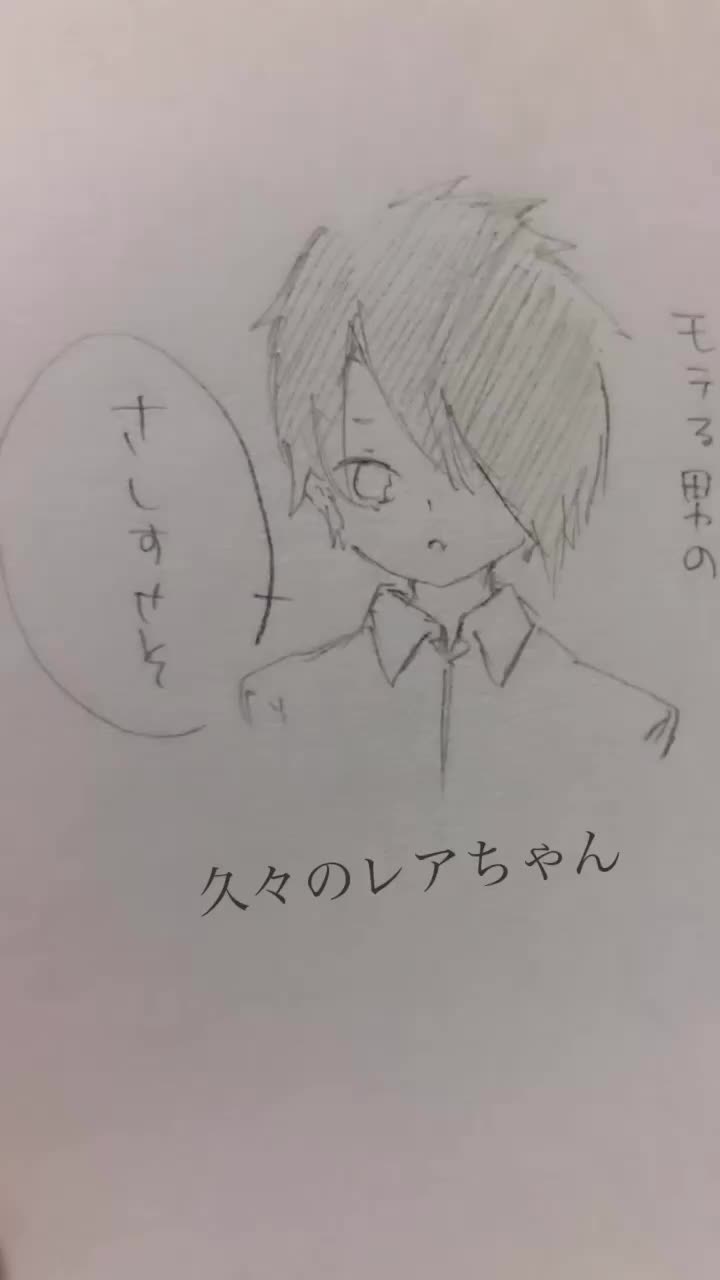 モテる男の
さしすさそ
久々のレアちゃん